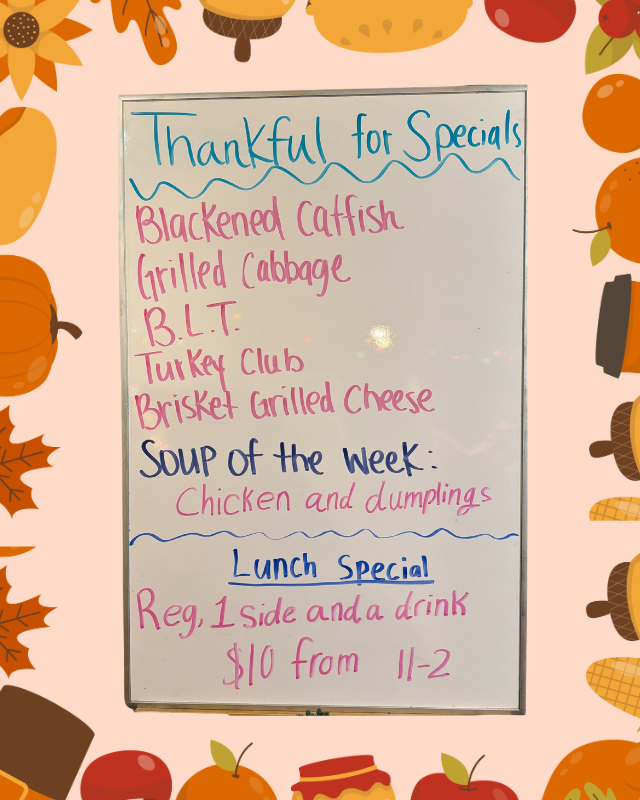 Thankful for Specials
Blackened Catfish
Grilled Cabbage
B.L.T.
Turkey Club
Brisket Grilled Cheese
Soup of the week:
Chicken and dumplings
Lunch Special
Reg, 1 side and a drink
$10 from 11-2